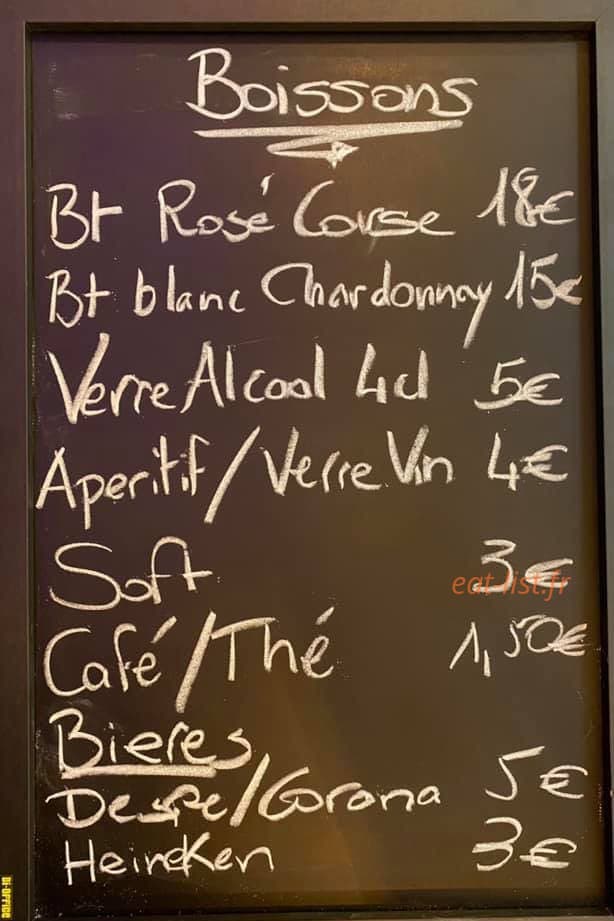 Boissons
Bt Rosé Corse 18€
Bt blanc Chardonnay 15€
Verre Alcool 4cl 5€
Aperitif/Verre Vin 4€
Soft 3€
eat-list.fr
Café/Thé 1,50€
Bieres
Despe/Corona 5€
Heineken 3€
DI-OFFICE